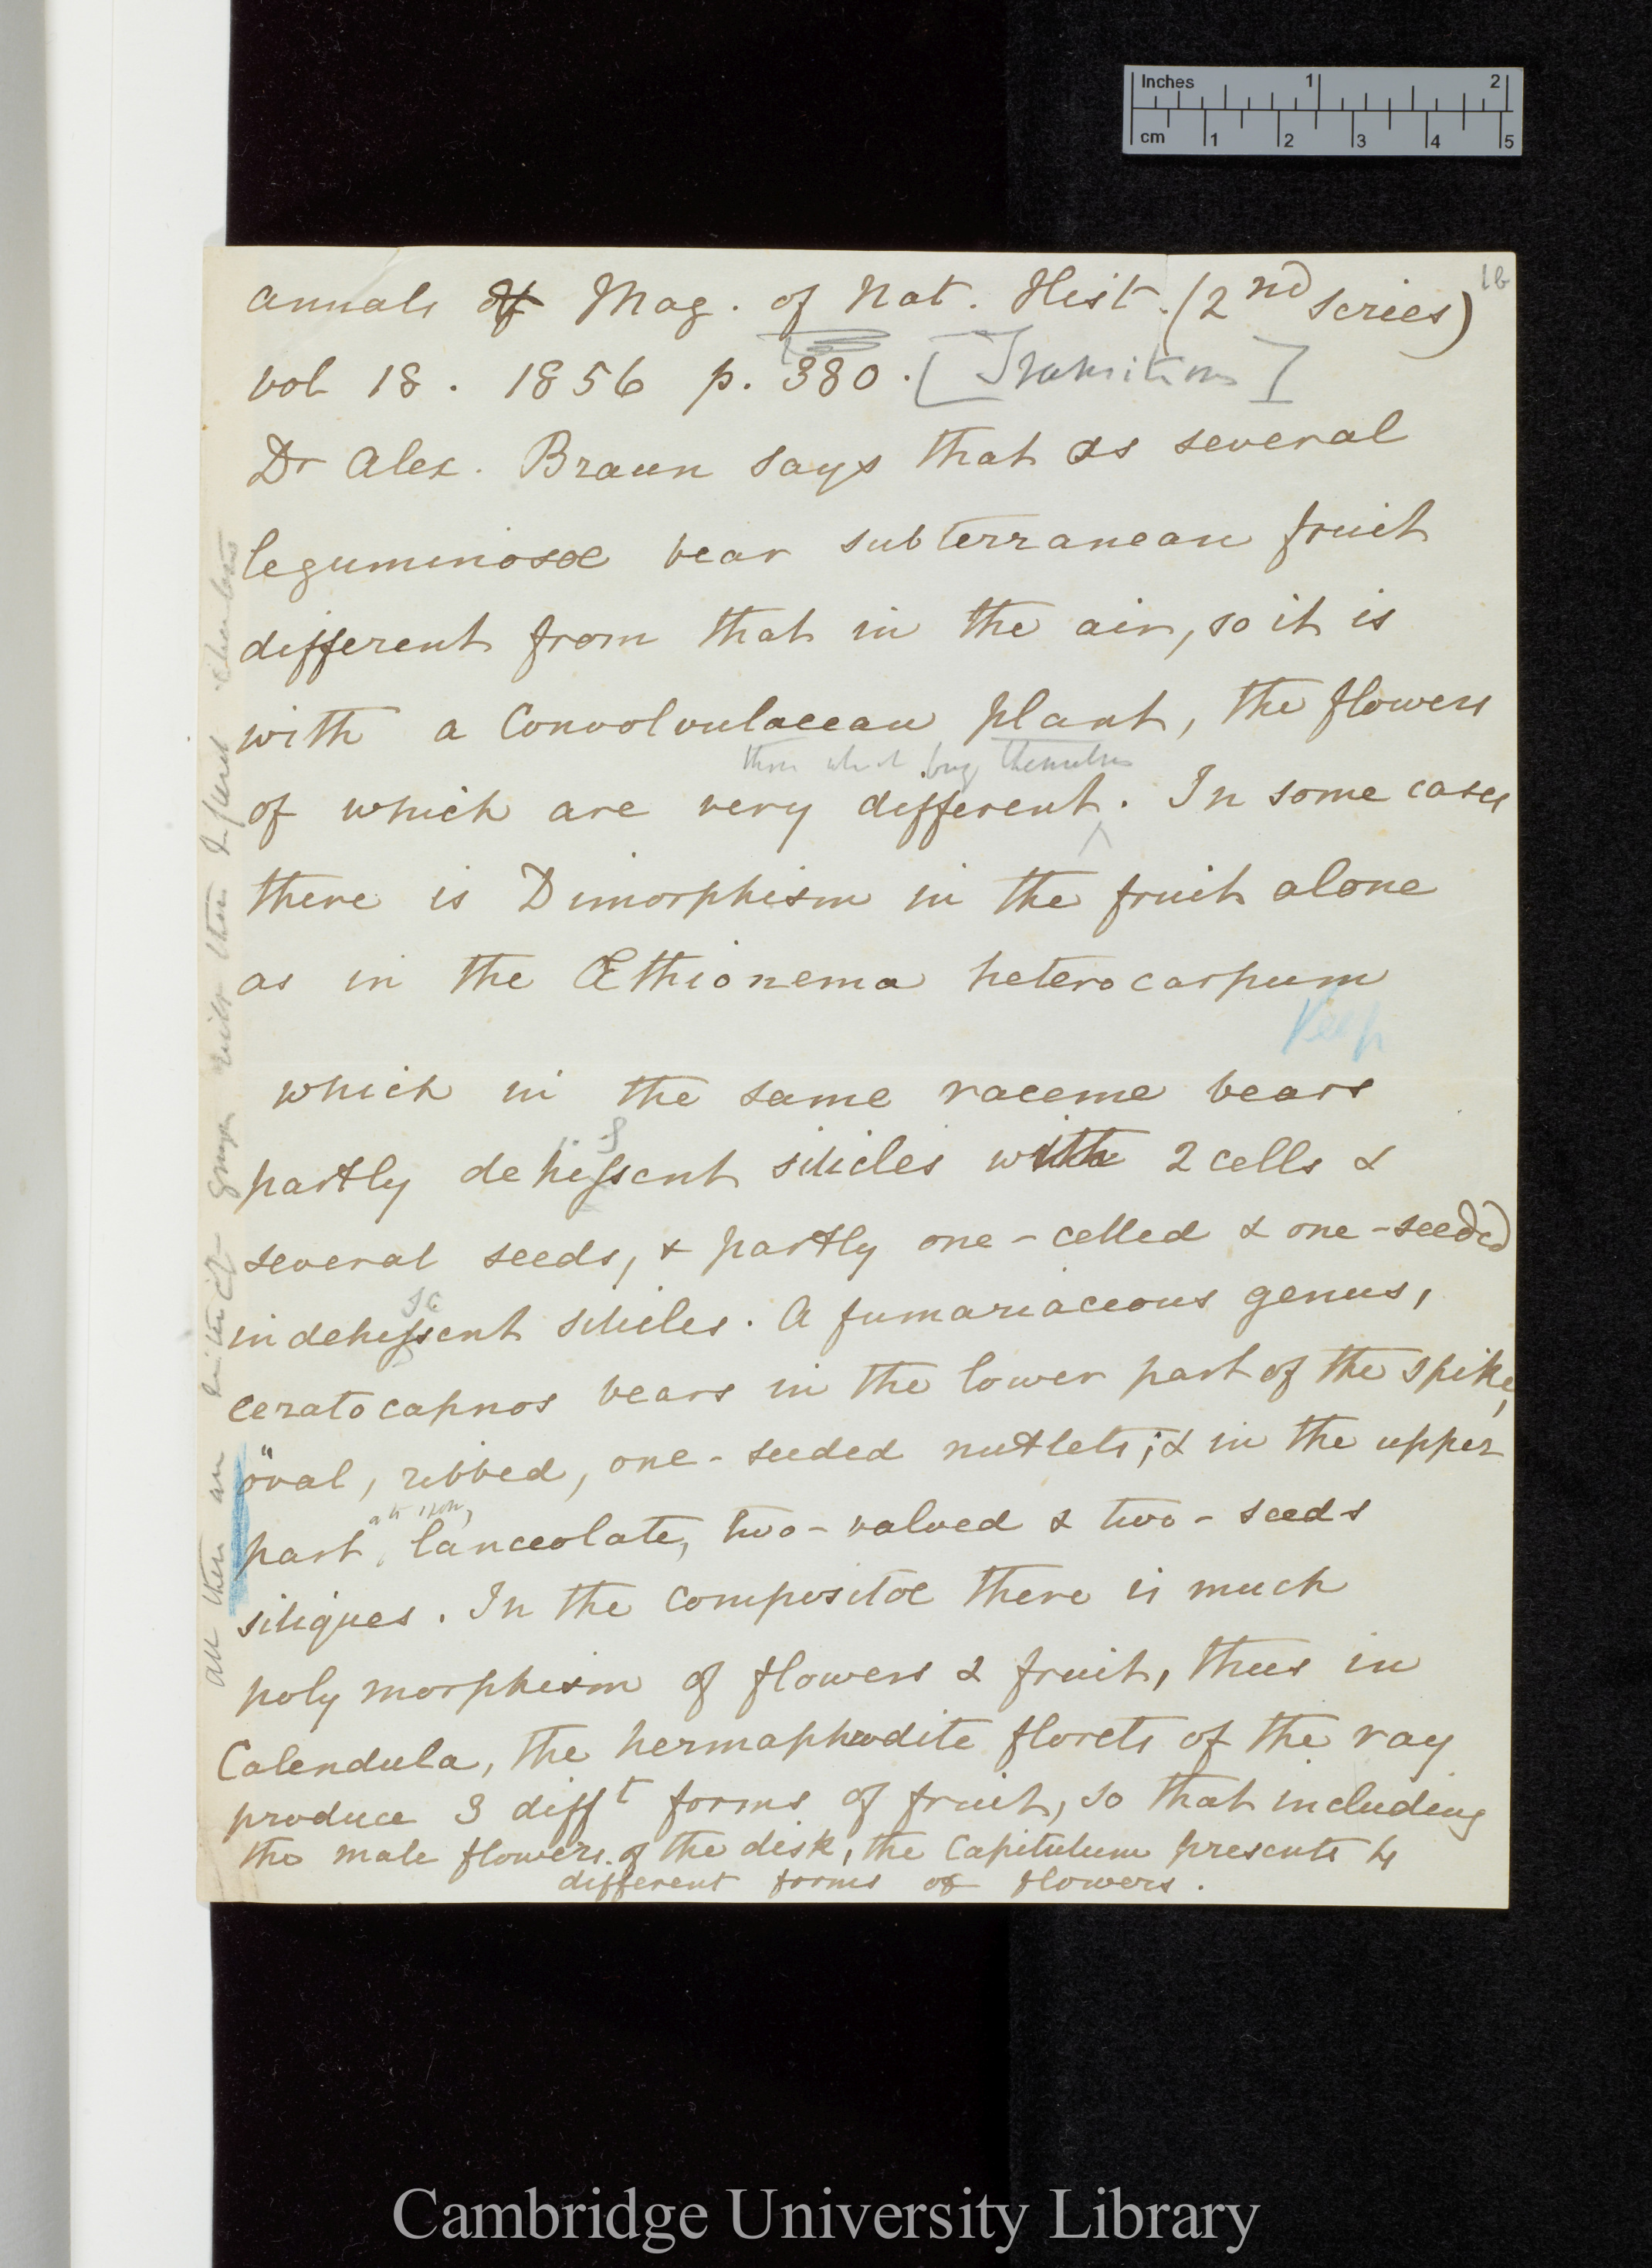 Inches 1 2
cm 1 2 3 4 5
16
Annals & Mag. of Nat. Hist. (2nd Series)
vol 18. 1856 p. 380. [Transitions]
Dr Alex. Braun says that as several
leguminosæ bear subterranean fruit
different from that in the air, so it is
with a Convolvulacean plant, the flowers
those which bury themselves
of which are very different. In some cases
there is Dimorphism in the fruit alone
as in the Œthionema heterocarpum
Keep
which in the same raceme bears
partly dehissent silicles with 2 cells &
several seeds, & partly one-celled & one-seeded
sc
indehissent silicles. A fumariaceous genus,
ceratocapnos bears in the lower part of the spike,
"oval, ribbed, one-seeded nutlets; & in the upper
part, lanceolate, two-valved & two-seeds
siliques. In the compositæ there is much
polymorphism of flowers & fruit, thus in
Calendula, the hermaphrodite florets of the ray
produce 3 difft forms of fruit, so that including
the male flowers of the disk, the Capitulum presents 4
different forms of flowers.
all these are
Cambridge University Library